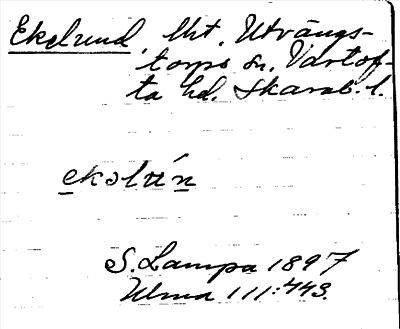 Ekelund, lht, Utvängs-
torps sn. Vartof-
ta hd. Skarab. l.
S. Lampa 1897
Ulma 111:443.